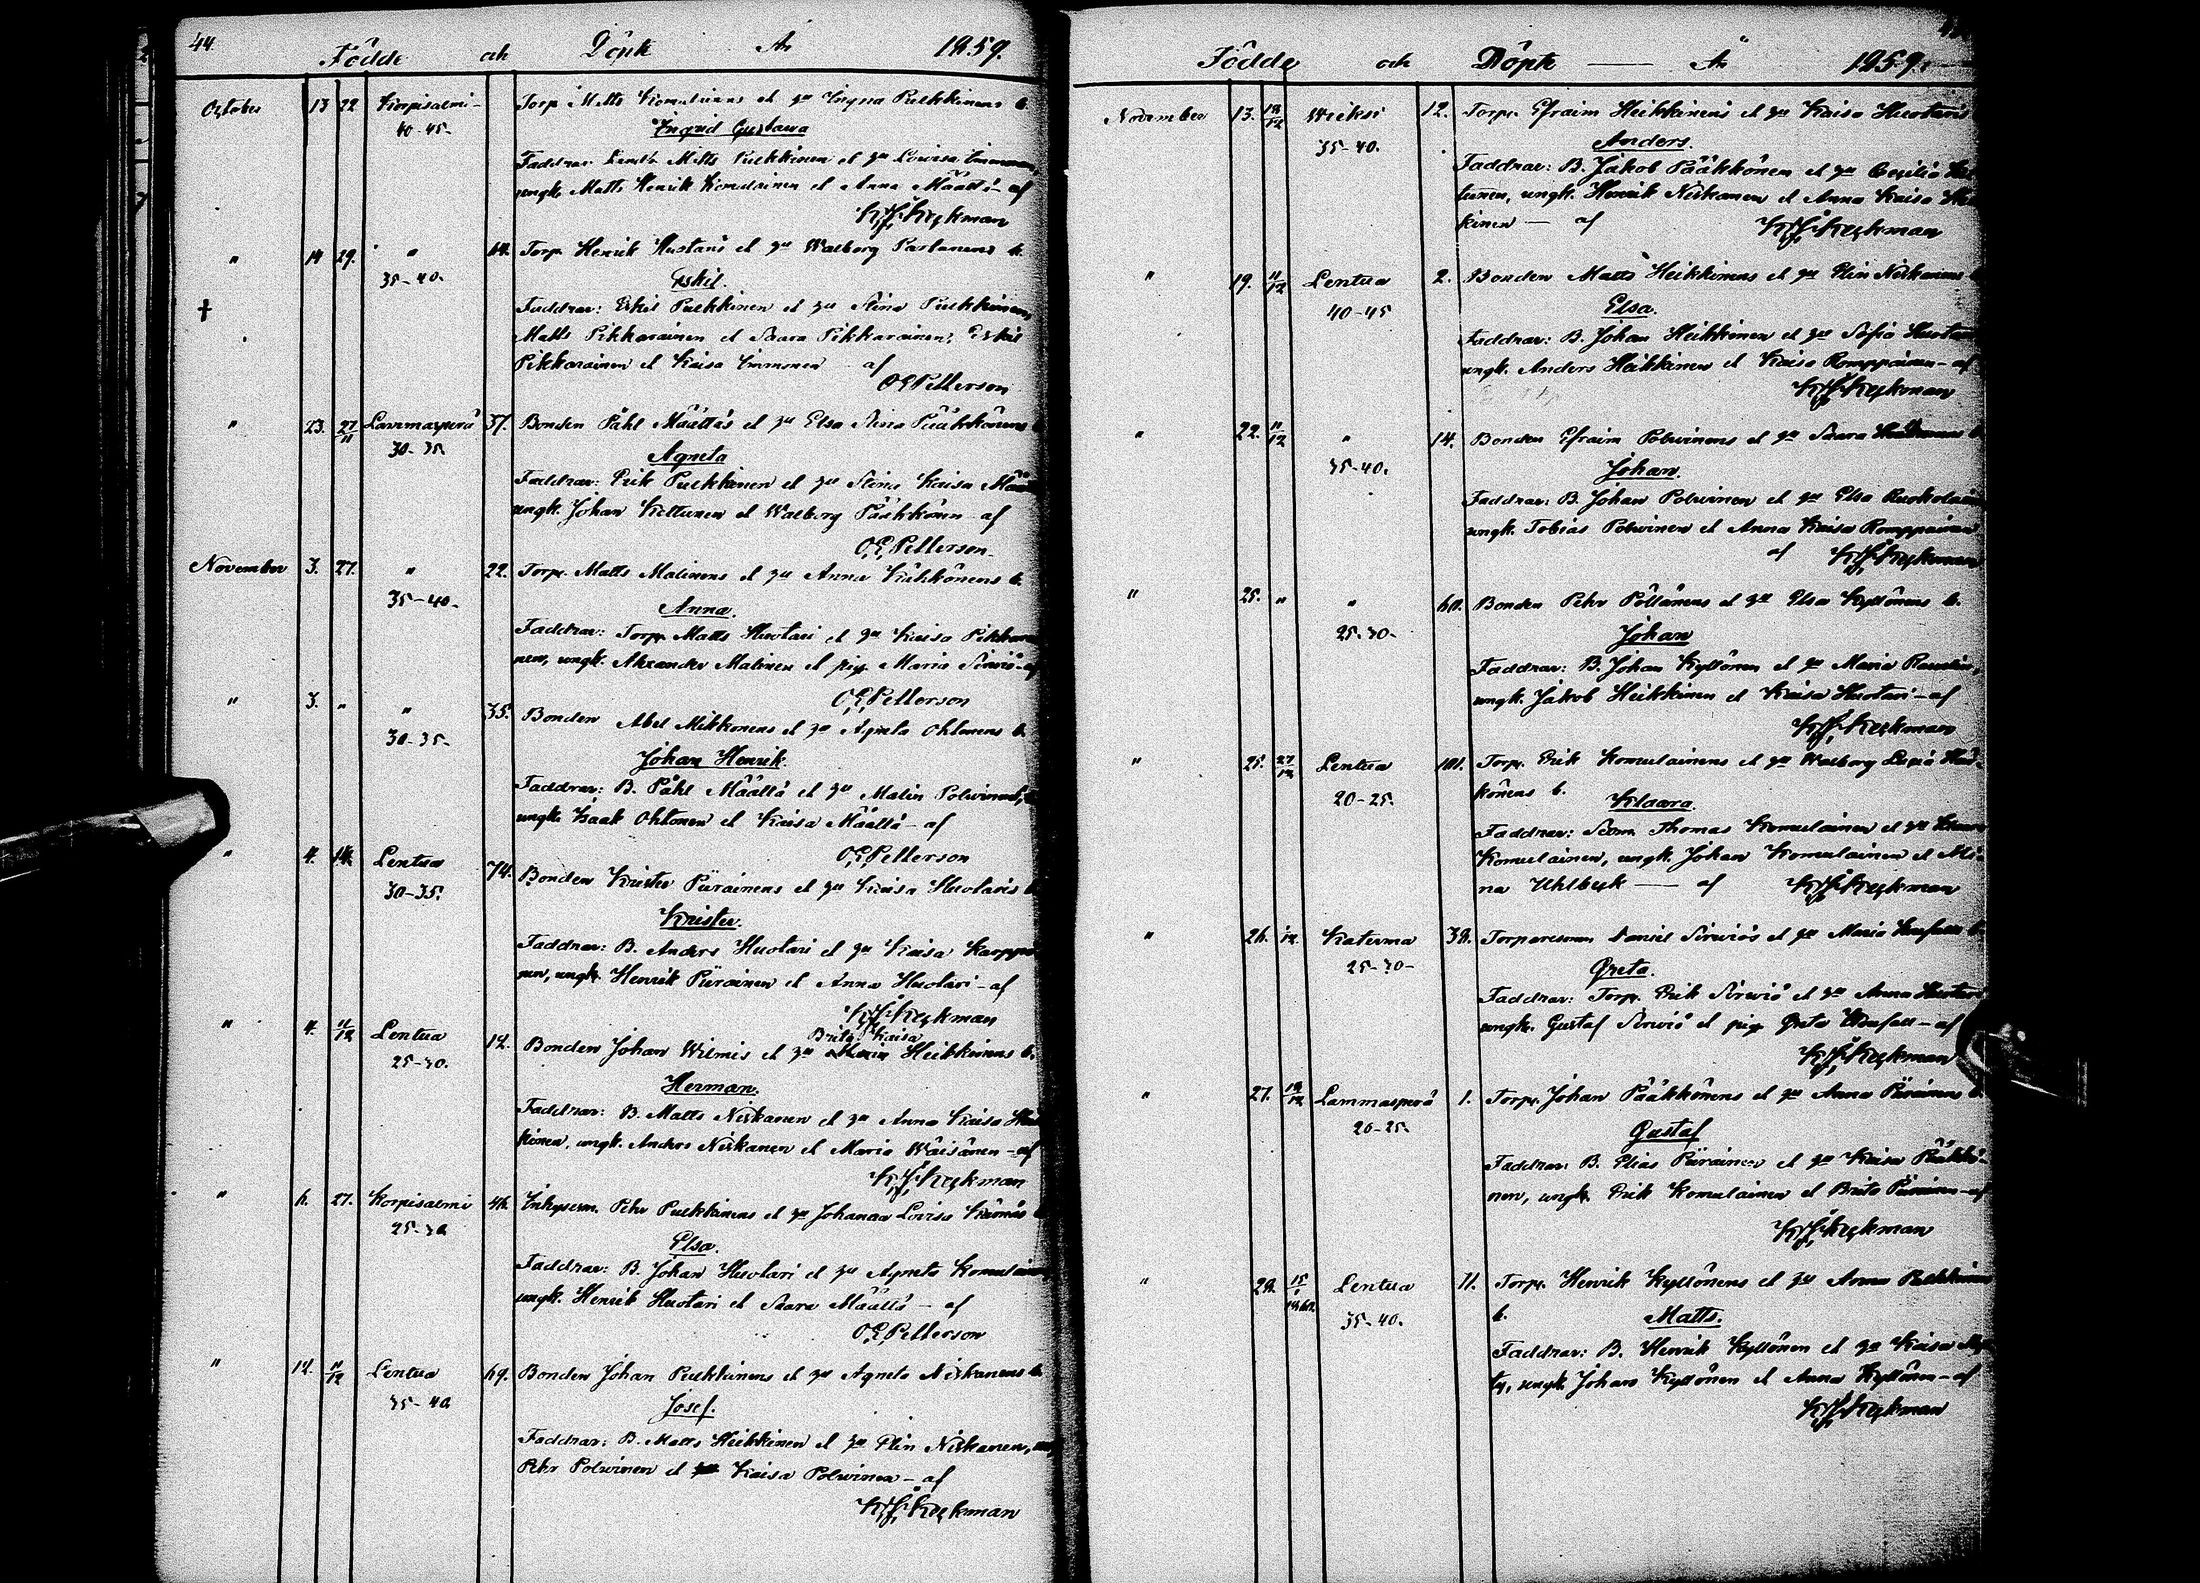 44.
Födde och Döpte År 1859.
October 13 22 Korpisalmi Torp. Matts Komulainens et hu Ingna Pulkkinens b.
40-45. Ingrid Gustava
Faddrar: Matts Pulkkinen et hu Lowisa Immonen,
ungk. Matts Henrik Komulainen et Anna Määttä - af
Keckman
" 14 29. " 14. Torp. Henrik Huotaris et hu Walborg Partanens b.
35-40. Eskil.
† Faddrar: Eskil Pulkkinen et hu Stina Pulkkinen,
Matts Pikkarainen et Saara Pikkarainen, Eskil
Pikkarainen et Kaisa Immonen af
O.E. Petterson
" 23. 27/11 Lammasperä 37. Bonden Påhl Määttäs et hu Elsa Stina Pääkkönens
30-35. Agneta
Faddrar: Erik Pulkkinen et hu Stina Kaisa
ungk. Johan Keltunen et Walborg Pääkkönen - af
O.E. Petterson
November 3. 27. " 22. Torp. Matts Malinens et hu Anna Kähkönens b.
35-40. Anna.
Faddrar: Torp. Matts Huotari et hu Kaisa
nen, ungk. Alexander Malinen et pig. Maria Sirwiö - af
O.E. Petterson
" 3. " " 35. Bonden Abel Mikkonens et hu Agneta Ohtonens b.
30-35. Johan Henrik.
Faddrar: B. Påhl Määttä et hu Malin Polwinen,
ungk. Isaak Ohtonen et Kaisa Määttä - af
O.E. Petterson
" 4. Lentua 74. Bonden Krister Piirainens et hu Kaisa Huotaris b.
30-35. Krister.
Faddrar: B. Anders Huotari et hu Kaisa Karppi
nen, ungk. Henrik Piirainen et Anna Huotari - af
Keckman
Brita Kaisa
" 4. 11/12 Lentua 12. Bonden Johan Wilmis et hu Heikkinens b.
25-30. Herman.
Faddrar: B. Matts Niskanen et hu Anna Kaisa
kinen, ungk. Anders Niskanen et Maria Wäisänen - af
Keckman
" 6. 27. Korpisalmi 46. Inhysesm. Pehr Pulkkinens et hu Johanna Lovisa
25-30 Elsa.
Faddrar: B. Johan Huotari et hu Agneta Komulainen
ungk. Henrik Huotari et Saara Määttä - af
O.E. Petterson
" 12. 11/12 Lentua 69. Bonden Johan Pulkkinens et hu Agneta Niskanens b.
35-40 Josef.
Faddrar: B. Matts Heikkinen et hu Elin Niskanen,
Pehr Polwinen et Kaisa Polwinen - af
Keckman
Födde och Döpte År 1859.
November 13. 18/12 Wieksi 12. Torp. Efraim Heikkinens et hu Kaisa Huotaris
35-40. Anders.
Faddrar: B. Jakob Pääkkönen et hu Cecilia Kel
tunen, ungk. Henrik Niskanen et Anna Kaisa
kinen - af Keckman
" 19. 11/12 Lentua 2. Bonden Matts Heikkinens et hu Elin Niskanens b.
40-45 Elsa.
Faddrar: B. Johan Heikkinen et hu Sofia
ungk. Anders Heikkinen et Kaisa Romppainen - af
Keckman
" 22. 11/12 " 14. Bonden Efraim Polwinens et hu Saara b.
35-40. Johan.
Faddrar: B. Johan Polwinen et hu Elsa
ungk. Tobias Polwinen et Anna Kaisa Romppainen
af Keckman
" 25. " " 60. Bonden Pehr Pöllänens et hu Elsa Kyllönens b.
25-30. Johan
Faddrar: B. Johan Kyllönen et hu Maria
ungk. Jakob Heikkinen et Kaisa Huotari - af
Keckman
" 25. 27/12 Lentua 101. Torp. Erik Komulainens et hu Walborg Lucia
20-25. könens b. Klaara.
Faddrar: Thomas Komulainen et hu
Komulainen, ungk. Johan Komulainen et Mi-
na Uhlbeck - af Keckman
" 26. Katerma 38. Torparesonen Daniel Sirwiös et hu Maria b.
25-30- Greta.
Faddrar: Torp. Erik Sirwiö et hu Anna
ungk. Gustaf Sirwiö et pig. Greta - af
Keckman
" 27. 18/12 Lammasperä 1. Torp. Johan Pääkkönens et hu Anna Piirainens b.
20-25. Gustaf
Faddrar: B. Elias Piirainen et hu Kaisa Pääkkö-
nen, ungk. Erik Komulainen et Brita Piirainen - af
Keckman
" 28. 15/1 1860. Lentua 11. Torp. Henrik Kyllönens et hu Anna Pulkkinens
35-40. b. Matts.
Faddrar: B. Henrik Kyllönen et hu Kaisa
ungk. Johan Kyllönen et Anna Kyllönen - af
Keckman